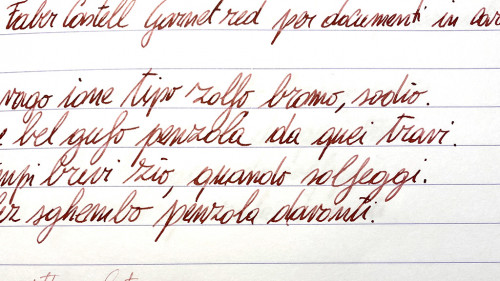 Faber Castell Garnet red per documenti in car
vago ione tipo zolfo bromo, sodio.
e bel gufo penzola da quei travi.
mpi brevi zio, quando solfeggi.
sghembo penzola davanti.